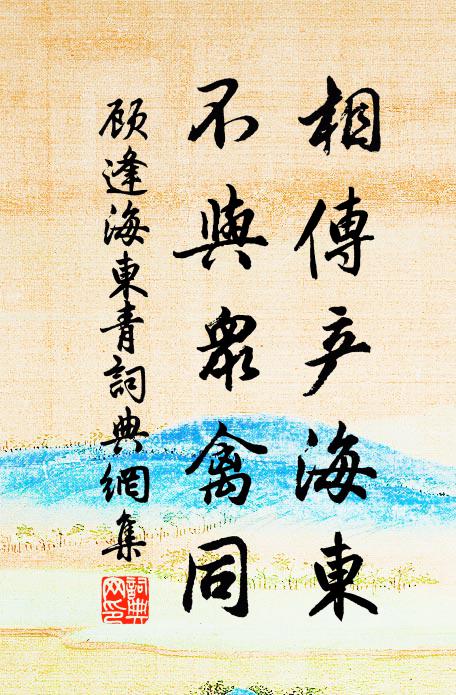 相傳产海東
不與眾禽同
顾逢海東青詞典網集
詞典网印